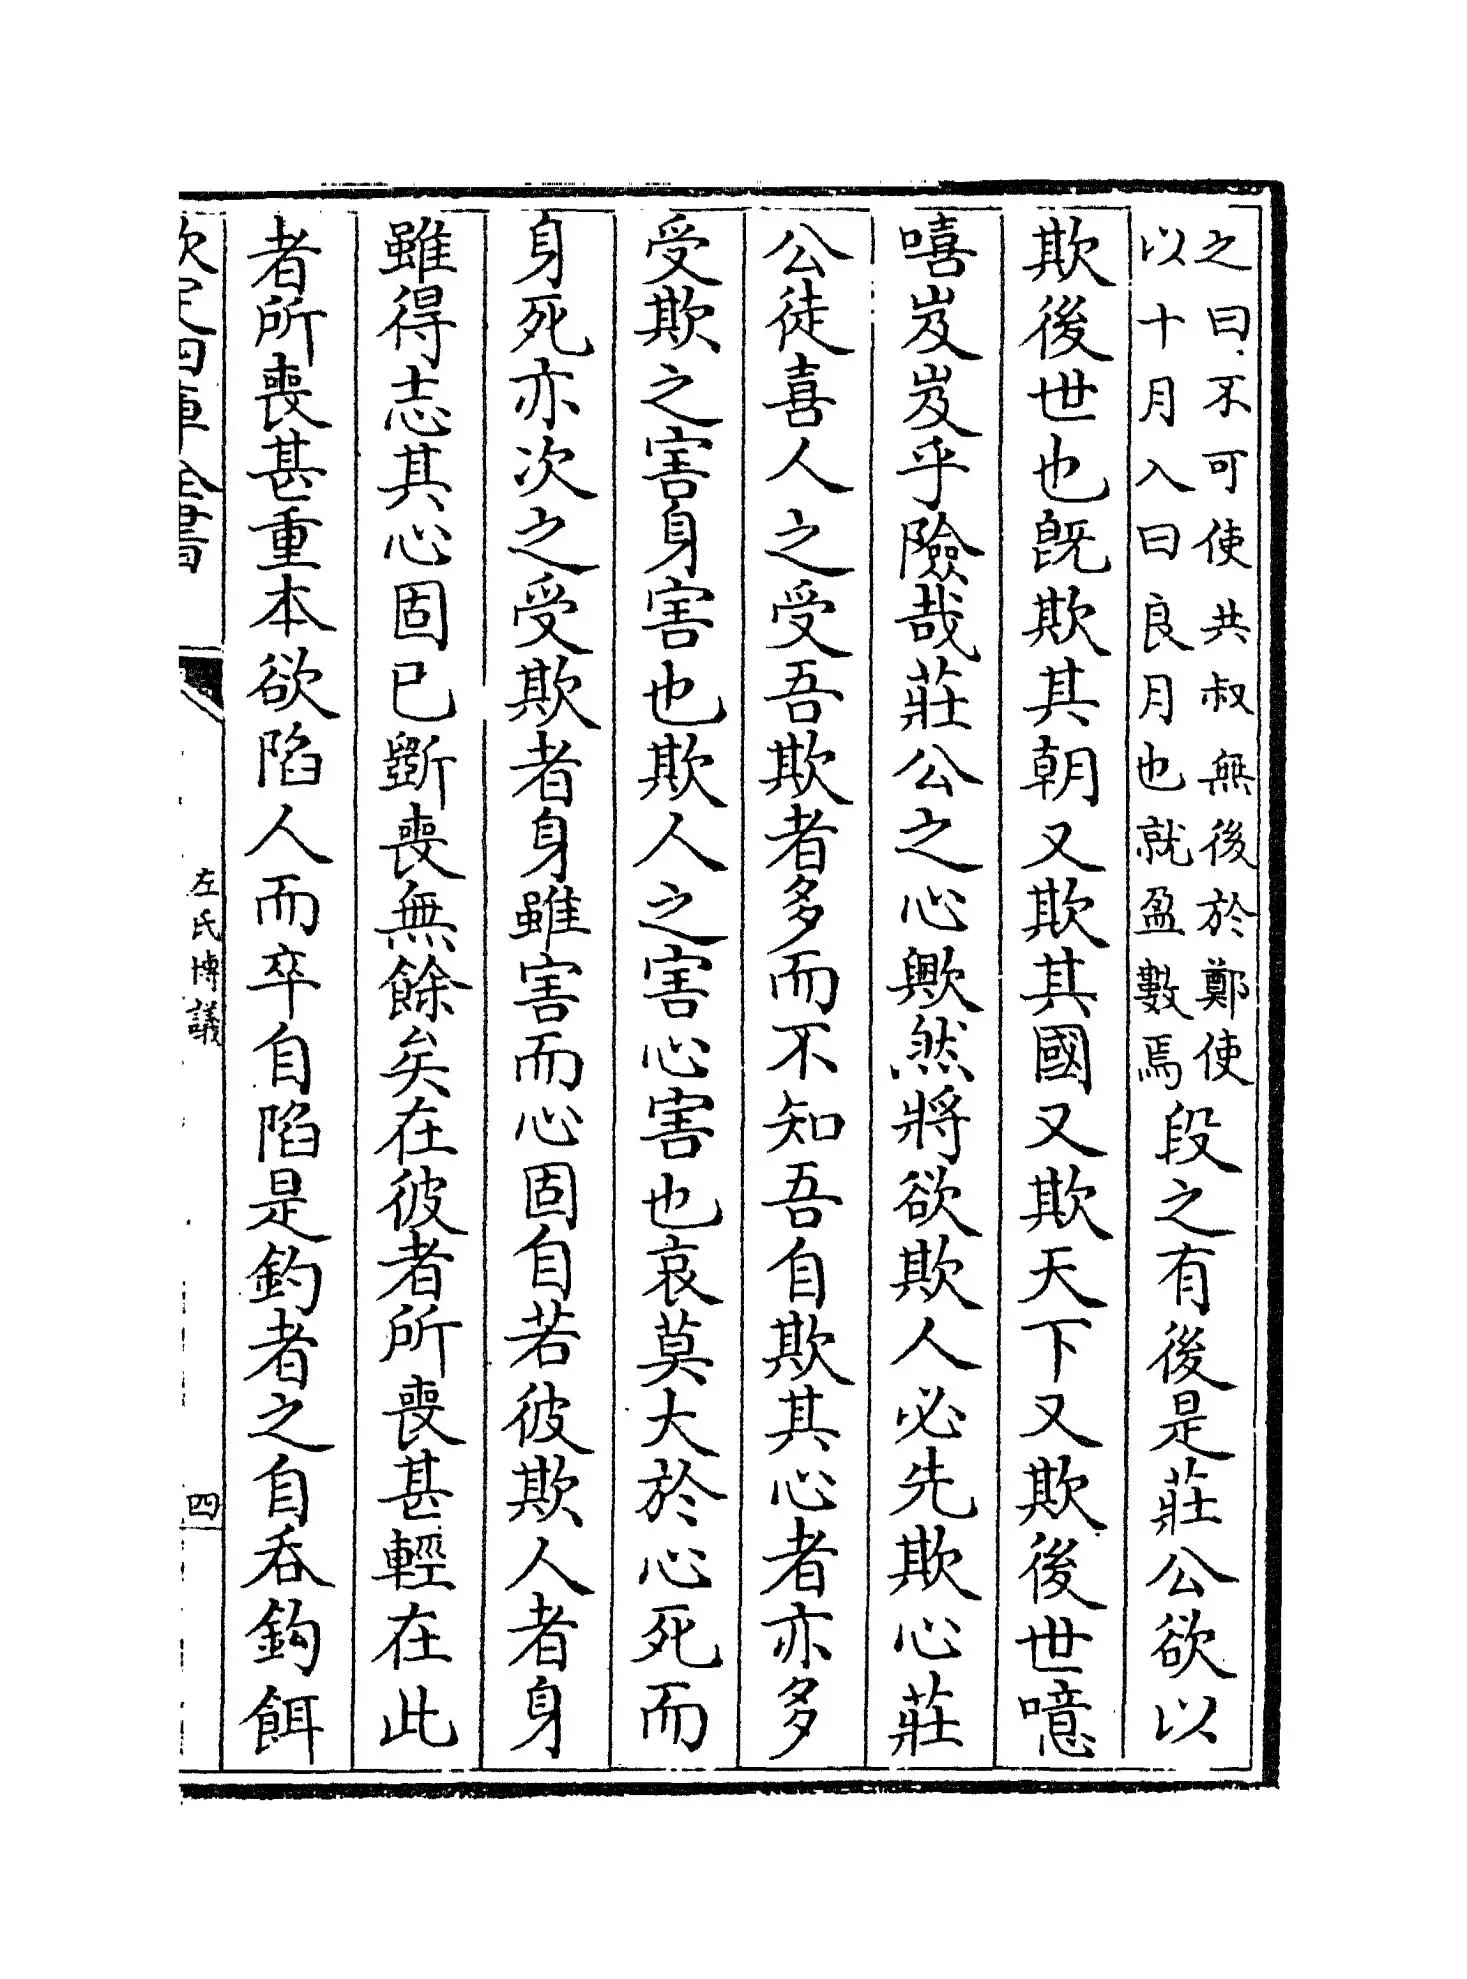 之曰不可使共叔無後於鄭使
以十月入曰良月也就盈數焉
段之有後是莊公欲以
欺後世也既欺其朝又欺其國又欺天下又欺後世噫
嘻岌岌乎險哉莊公之心歟然將欲欺人必先欺心莊
公徒喜人之受吾欺者多而不知吾自欺其心者亦多
受欺之害身害也欺人之害心害也哀莫大於心死而
身死亦次之受欺者身雖害而心固自若彼欺人者身
雖得志其心固已斵喪無餘矣在彼者所喪甚輕在此
者所喪甚重本欲陷人而卒自陷是釣者之自呑鈎餌
欽定四庫全書
左氏博議
四